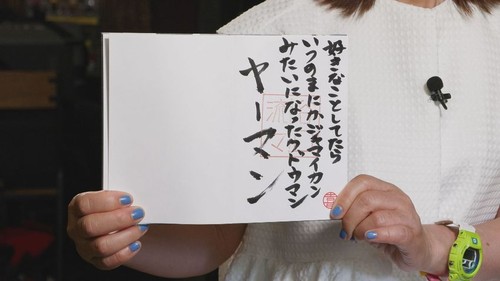 好きなことしてたら
いつのまにかジャマイカン
みたいになったグットウマン
ヤーマン